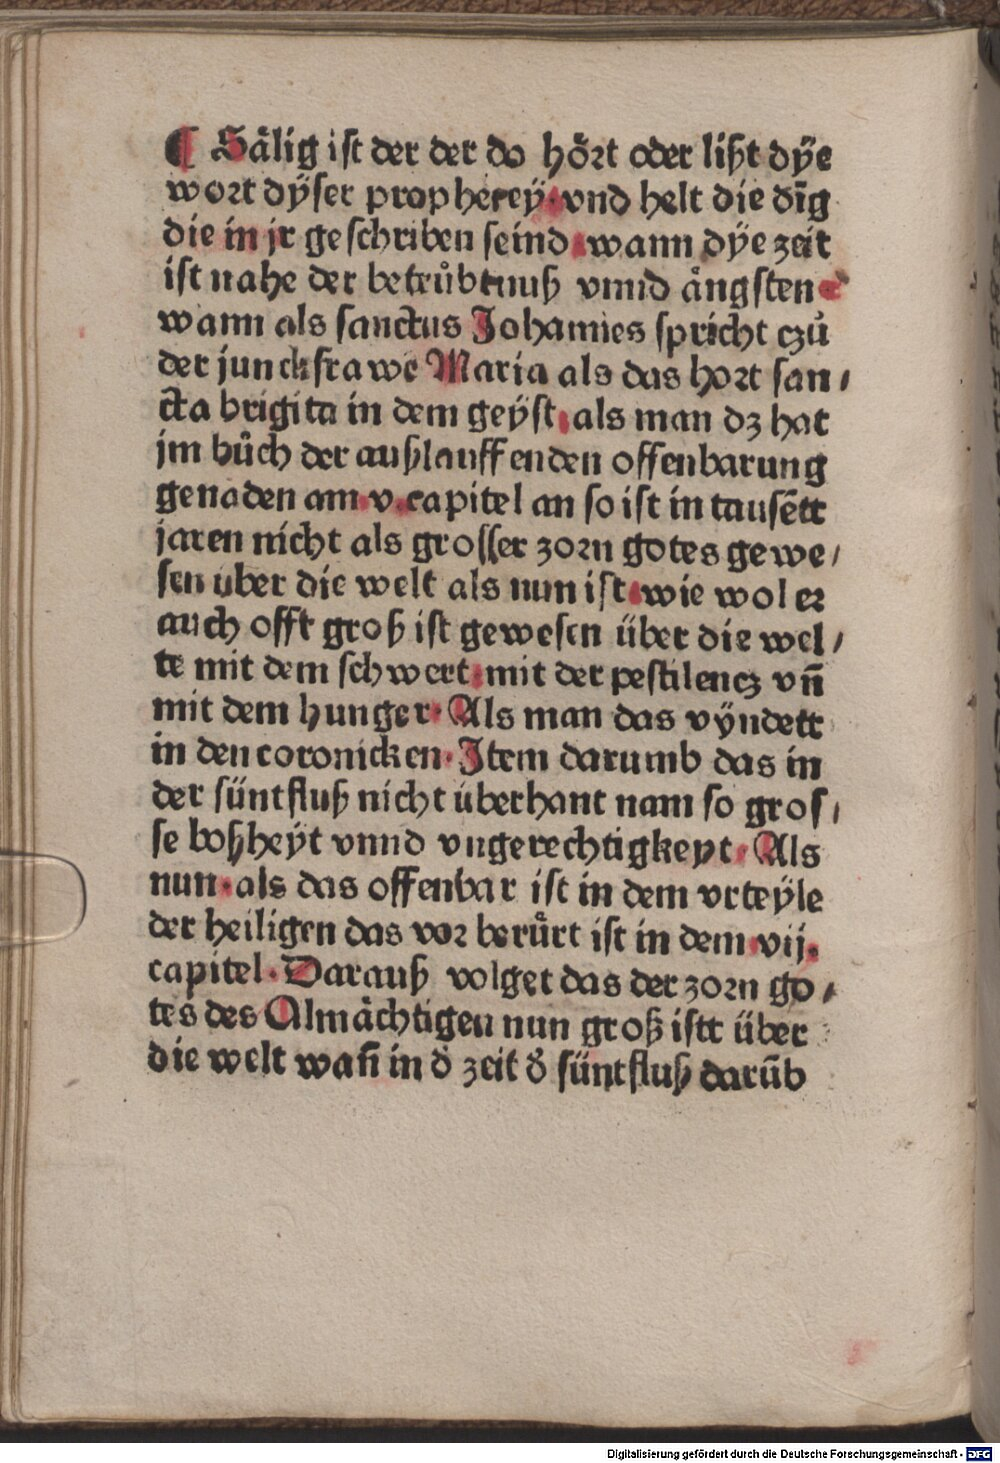 ¶ Sålig ist der der do hoͤrt oder lißt dÿe
wort dÿser propherey· vnd helt die dīg
die in jr geschriben seind· wann dÿe zeit
ist nahe der betruͤbtnuß vnnd ångsten·
wann als sanctus Johannes spricht czů
der junckfrawe Maria als das hort san⸗
cta brigita in dem geÿst· als man dz hat
jm bůch der außlauffenden offenbarung
genaden am·v·capitel an so ist in tausētt
jaren nicht als grosser zorn gotes gewe⸗
sen über die welt als nun ist·wie wol er
auch offt groß ist gewesen über die wel⸗
te mit dem schwert·mit der pestilencz vn̄
mit dem hunger· Als man das vÿndett
in den coronicken· Item darumb das in
der süntfluß nicht überhant nam so gros⸗
se boßheÿt vnnd vngerechtigkeyt· Als
nun·als das offenbar ist in dem vrteÿle
der heiligen das vor beruͤrt ist in dem vij·
capitel· Darauß volget das der zorn go⸗
tes des Almåchtigen nun groß istt über
die welt wan̄ in d̓ zeit d̓ süntfluß darūb
Digitalisierung gefördert durch die Deutsche Forschungsgemeinschaft - DFG